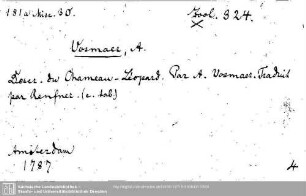 181 a Misc. 30. Zool. 324.
Vosmaer, A.
Descr. du Chameau-Léopard. Par A. Vosmaer. Traduit
par Renfner. (c. tab)
Amsterdam
1787 4
Sächsische Landesbibliothek -
Staats- und Universitätsbibliothek Dresden